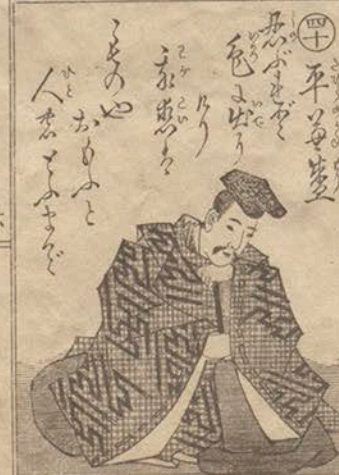 四十
平兼盛
忍ぶれど
色に出に
けり
我恋は
ものや
おもふと
人のとふまで